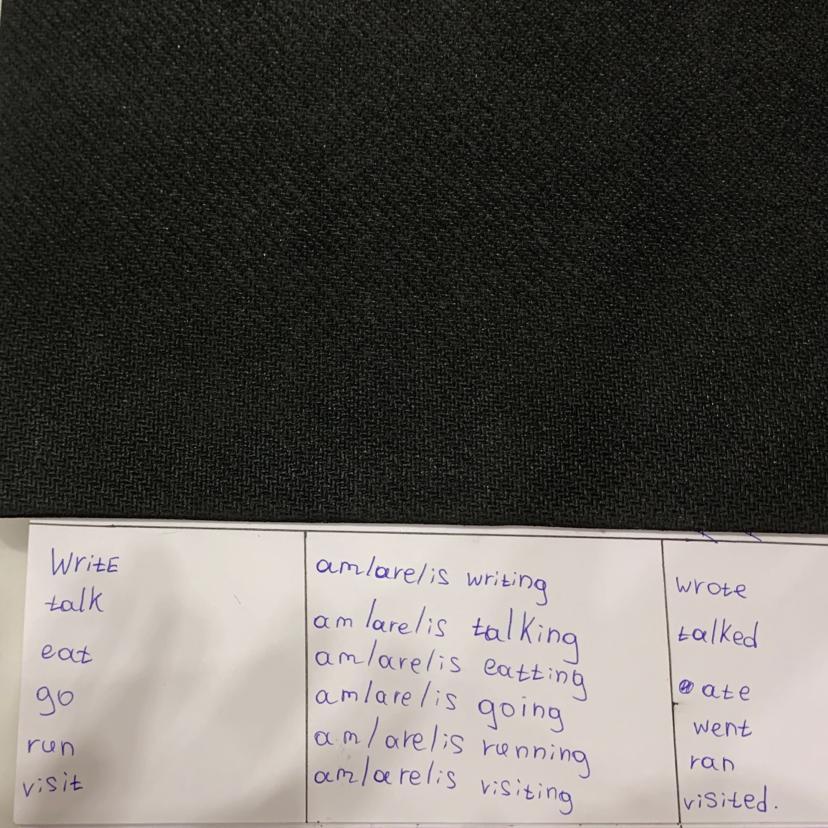 WritE am/are/is writing wrote
talk am/are/is talking talked
eat am/are/is eatting ate
go am/are/is going went
run am/are/is running ran
visit am/are/is visiting visited.